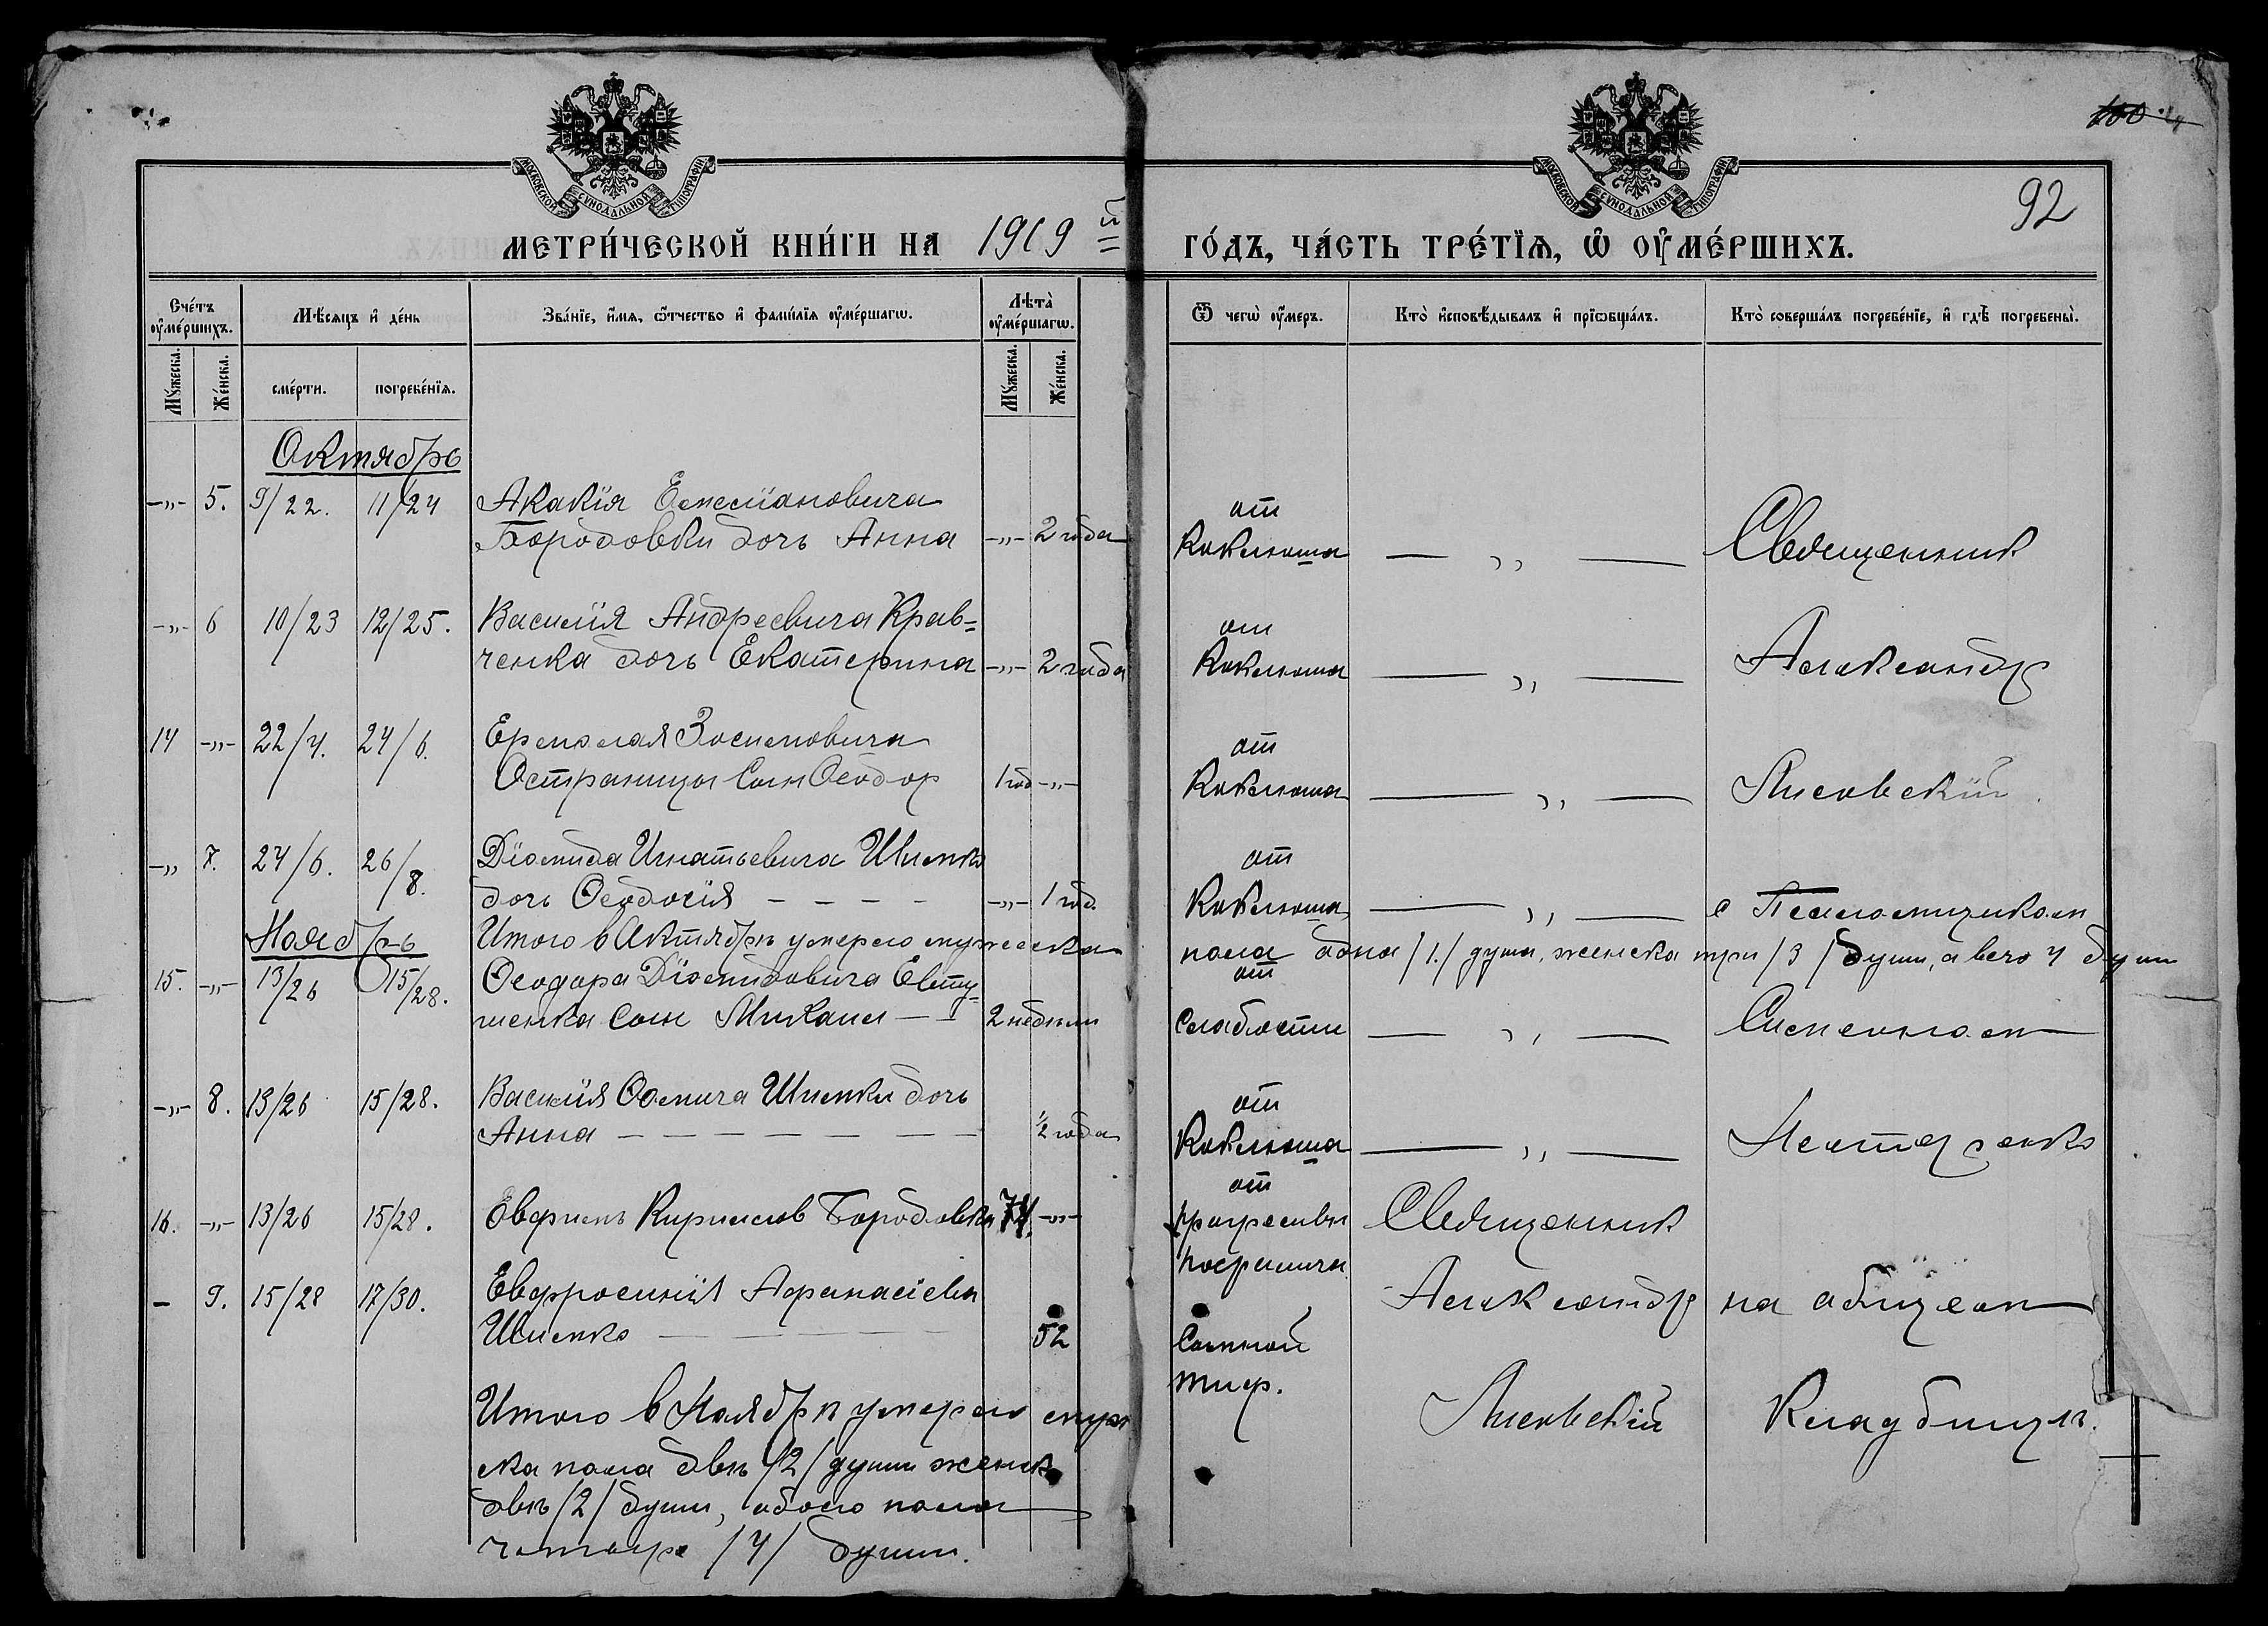 100
92
МОСКОВСКОЙ СѴНОДАЛЬНОЙ ТИПОГРАФІИ
МОСКОВСКОЙ СѴНОДАЛЬНОЙ ТИПОГРАФІИ
МЕТРИ́ЧЕСКОЙ КНИ́ГИ НА 1919 й ГО́ДЪ, ЧА́СТЬ ТРЕ́ТЇѦ, Ѡ҆ ОУ҆МЕ́РШИХЪ.
Сче́тъ оу҆ме́ршихъ.
Мꙋ́жеска.
Же́нска.
Мѣ́сяцъ и҆ де́нь
сме́рти.
погребе́нїѧ.
Зва́нїе, и҆́мѧ, ѻ҆́тчество и҆ фами́лїѧ оу҆ме́ршагѡ.
Лѣта̀ оу҆ме́ршагѡ.
Мꙋ́жеска.
Же́нска.
Ѿ чегѡ̀ оу҆́меръ.
Кто̀ и҆сповѣ́дывалъ и҆ прїѡбща́лъ.
Кто̀ соверша́лъ погребе́нїе, и҆ гдѣ̀ погребены̀.
Октябрь
-„- 5. 9/22. 11/24 Акакія
Бородовки дочь Анна -„- 2 года от Коклюша — „ — Священник
-„- 6 10/23 12/25. Василія Андреевича Крав=
ченка дочь Екатерина -„- 2 года от Коклюша — „ — Александр
14 -„- 22/4. 24/6. Ермолая Зосимовича
Остраницы сын Ѳеодор 1 год -„- от Коклюша — „ — Лисовскій
-„ 7. 24/6. 26/8. Діомида Игнатьевича
дочь Ѳеодосія - - - - -„- 1 год. от Коклюша — „ — с Псаломщиком
Ноябрь
Итого в Октябрѣ умерло мужеска пола одна /1/ душа, женска три /3/ души, а всего 4 души
15. -„- 13/26 15/28. Ѳеодора Діомидовича Евту=
шенка сын Михаил — — 2 недѣли от слабости — „ — Симеоном
-„- 8. 13/26 15/28. Василія Ѳомича дочь
Анна — — — — — — — 1/2 года от Коклюша — „ —
16. -„- 13/26 15/28. Кириллов Бородовка 74. -„- от Священник
- 9. 15/28 17/30. Евфросинія Афанасіева
— — — — — 52 Сыпной тиф. Александр Лисовскій на общем Кладбищѣ.
Итого в Ноябрѣ умерло муже
ска пола двѣ /2/ души женск
двѣ /2/ души, обоего пола
четыре /4/ души.